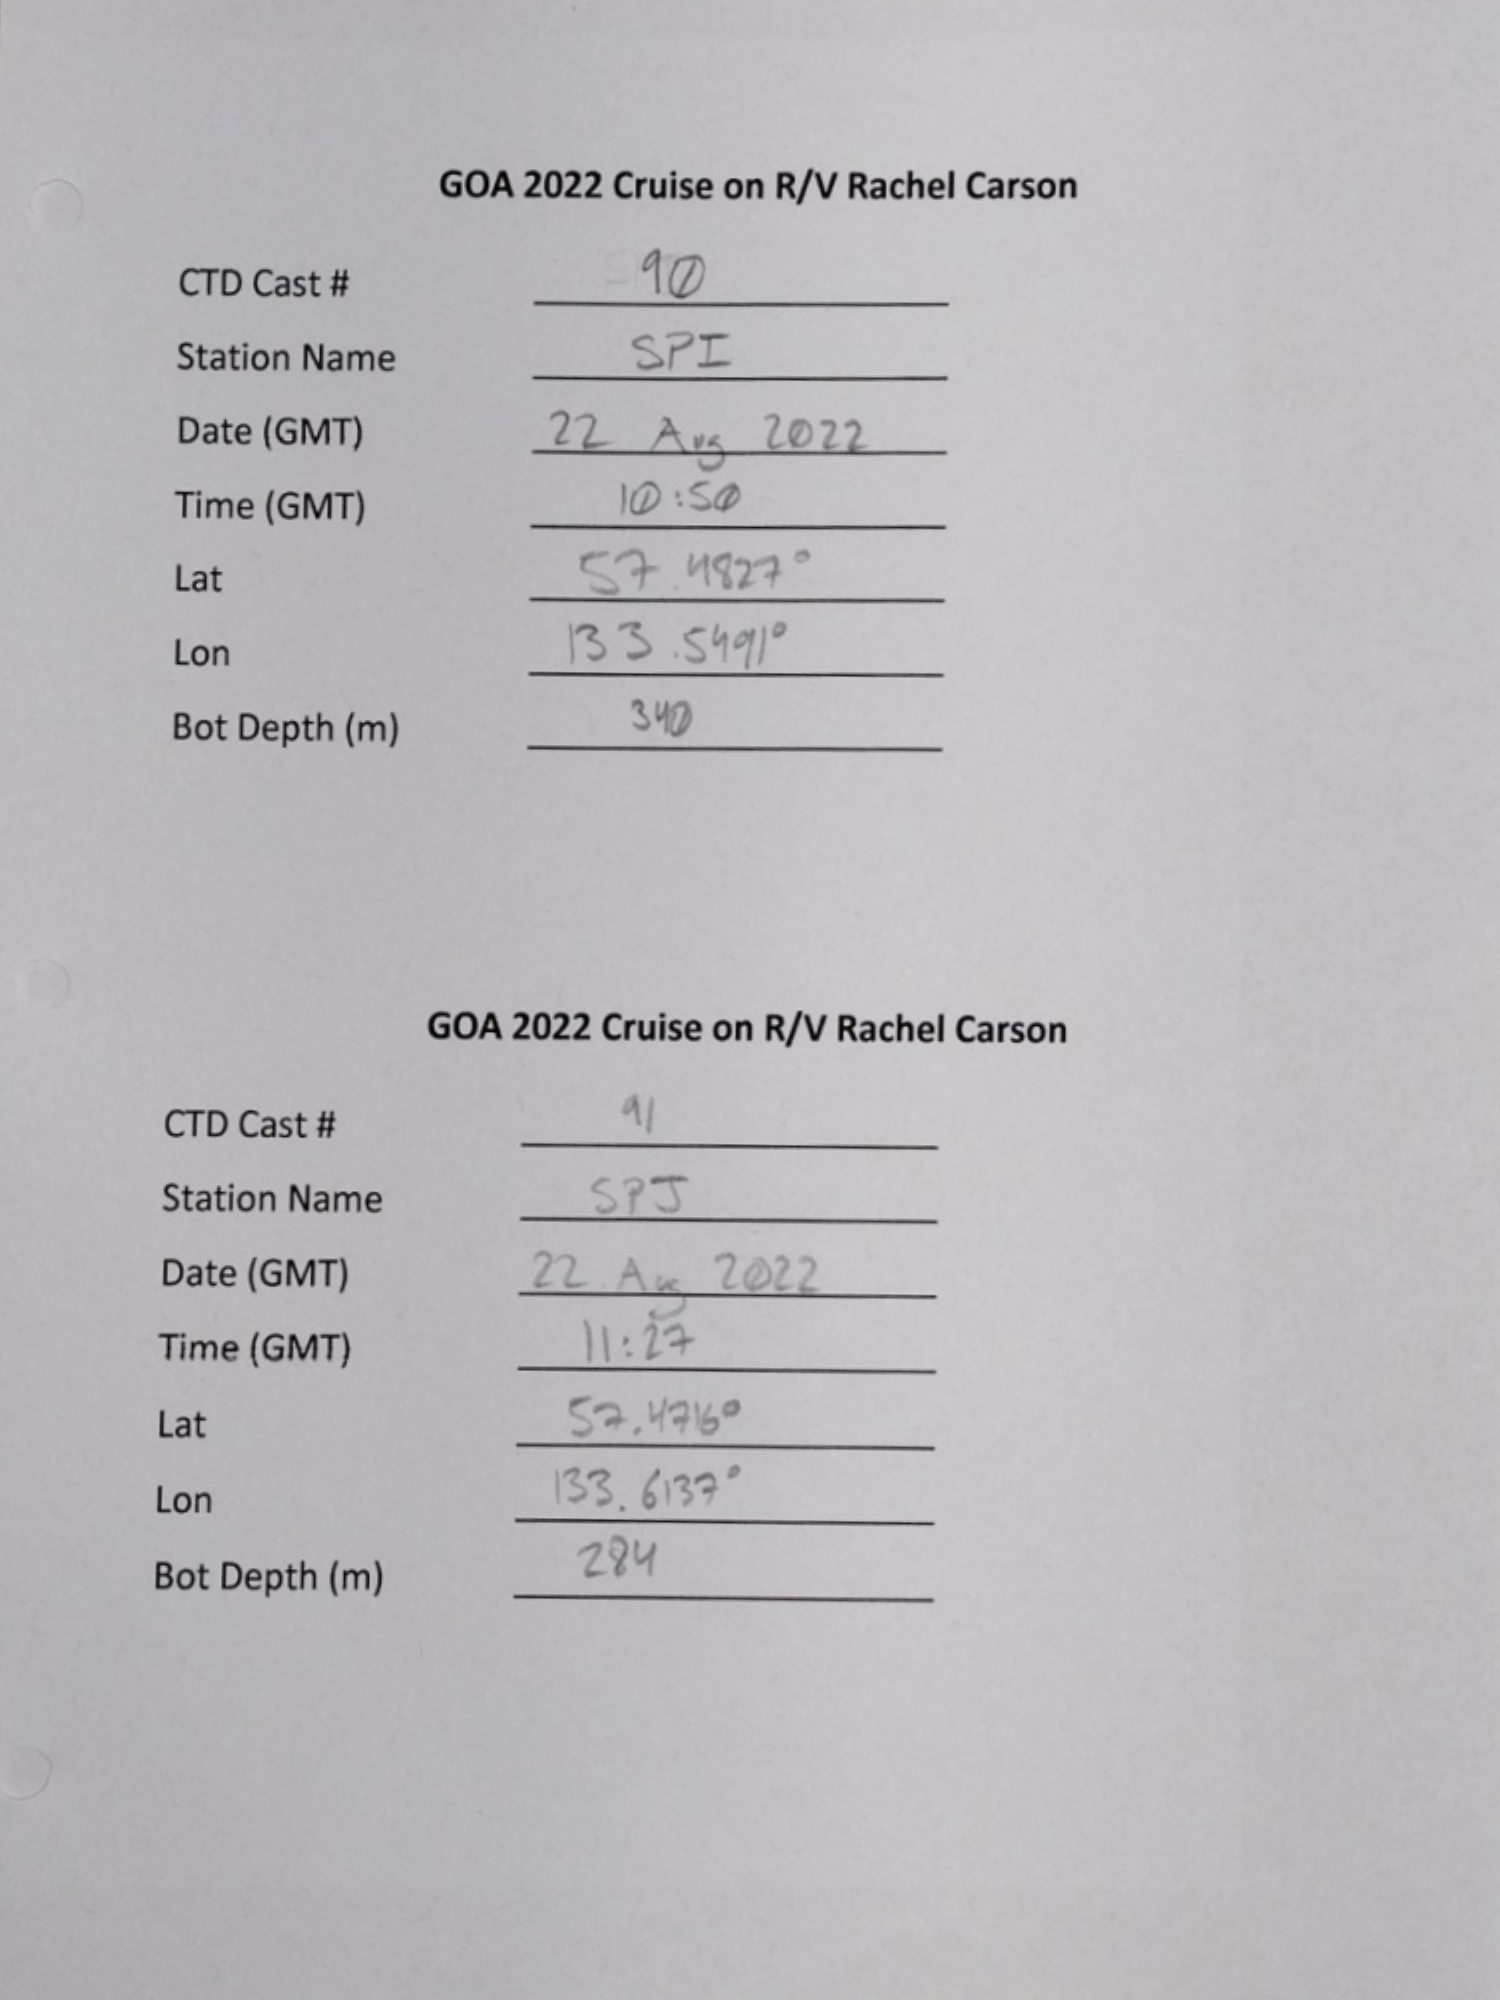 GOA 2022 Cruise on R/V Rachel Carson
CTD Cast # 90
Station Name SPI
Date (GMT) 22 Aug 2022
Time (GMT) 10:50
Lat 57.4827°
Lon 133.5491°
Bot Depth (m) 340
GOA 2022 Cruise on R/V Rachel Carson
CTD Cast # 91
Station Name SPJ
Date (GMT) 22 Aug 2022
Time (GMT) 11:27
Lat 57.4716°
Lon 133.6137°
Bot Depth (m) 284